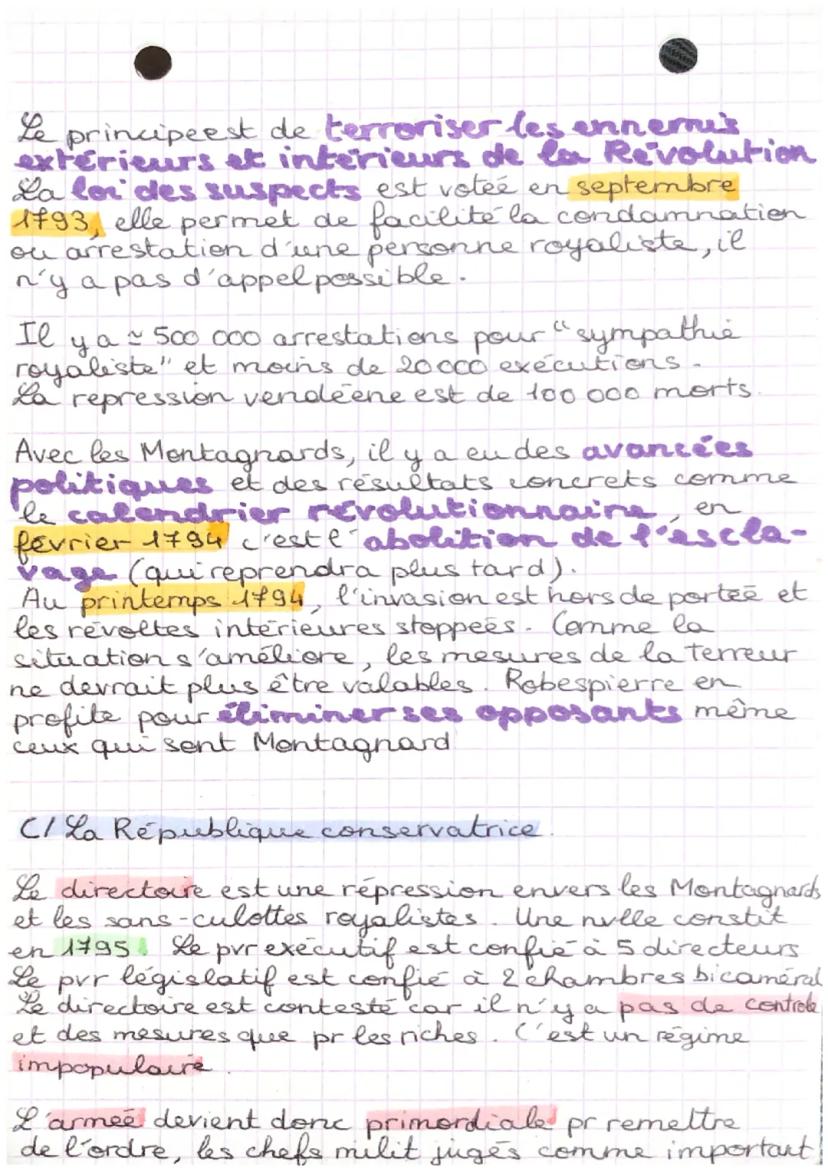 Le principe est de terroriser les ennemis
extérieurs et intérieurs de la Révolution
La loi des suspects est voteé en septembre
1793, elle permet de facilité la condamnation
ou arrestation d'une personne royaliste, il
n'y a pas d'appel possible.
Il y a ≃ 500 000 arrestations pour "sympathie
royaliste" et moins de 20 000 exécutions.
La repression vendéene est de 100 000 morts.
Avec les Montagnards, il y a eu des avancées
politiques et des résultats concrets comme
le calendrier révolutionnaire, en
février 1794 c'est l'abolition de l'escla-
vage (qui reprendra plus tard).
Au printemps 1794, l'invasion est hors de porteé et
les révoltes intérieures stoppeés. Comme la
situation s'améliore, les mesures de la Terreur
ne devrait plus être valables. Robespierre en
profite pour éliminer ses opposants même
ceux qui sont Montagnard
C/ La République conservatrice.
Le directoire est une répression envers les Montagnards
et les sans-culottes royalistes. Une nvlle constit
en 1795. Le pvr exécutif est confié à 5 directeurs
Le pvr législatif est confié à 2 chambres bicaméral
Le directoire est contesté car il n'y a pas de controle
et des mesures que pr les riches. C'est un régime
impopulaire.
L'armeé devient donc primordiale pr remettre
de l'ordre, les chefs milit jugés comme important